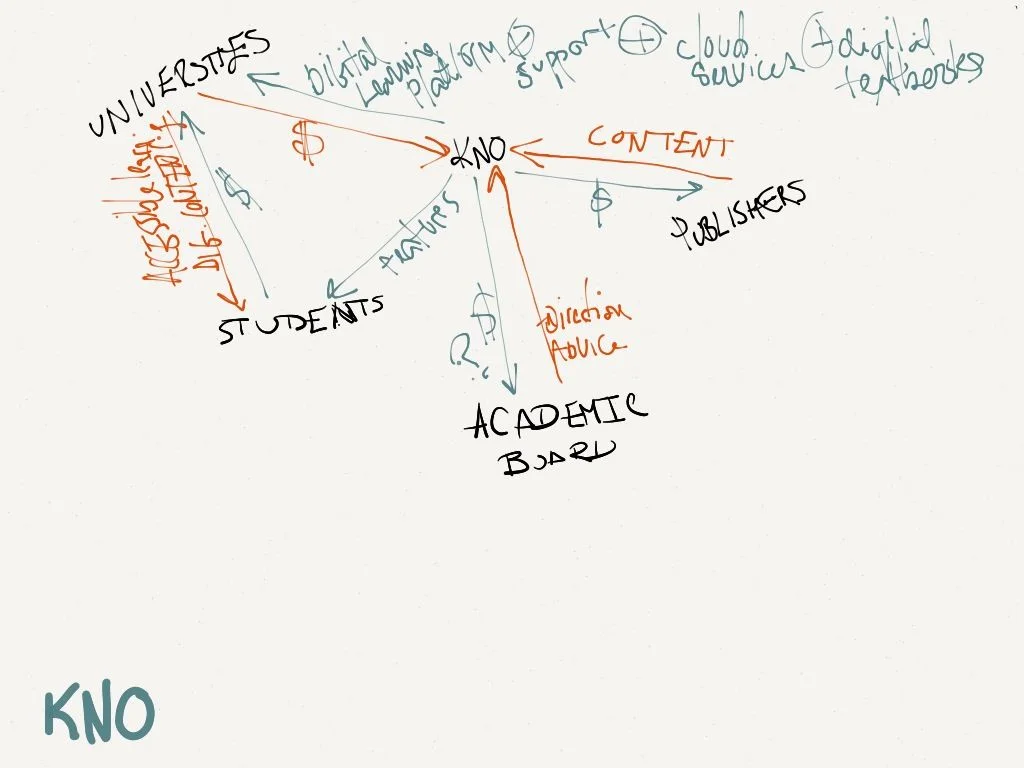 UNIVERSTIES
Digital
Learning
Platform + support + cloud
services + digital
textbooks
$
KNO
CONTENT
$
PUBLISHERS
ACCESSible
DIG. CONTENT
$
features
STUDENTS
$
?
Direction
ADVICE
ACADEMIC
BOARD
KNO